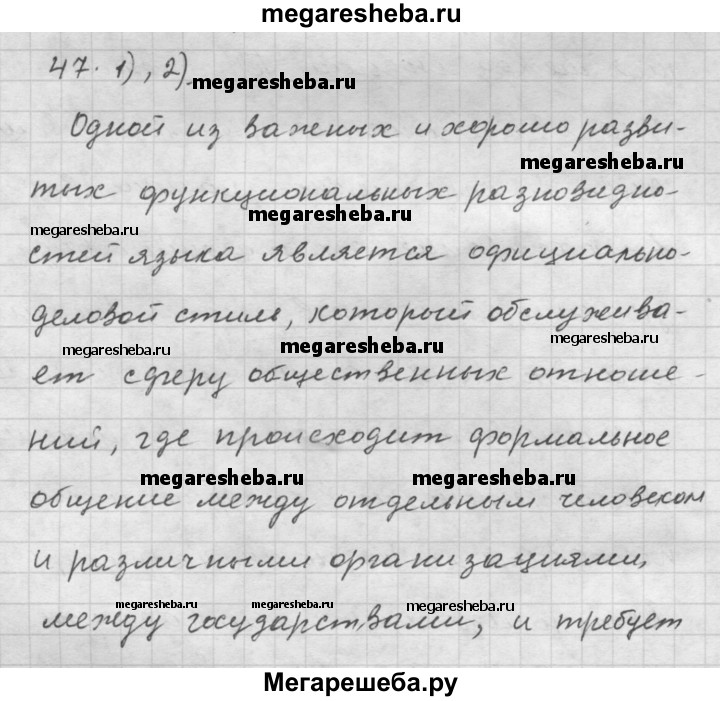 megaresheba.ru
47. 1), 2)
megaresheba.ru
Одной из важных и хорошо разви-
megaresheba.ru
тых функциональных разновидно-
megaresheba.ru megaresheba.ru
стей языка является официально-
деловой стиль, который обслужива-
megaresheba.ru megaresheba.ru megaresheba.ru
ет сферу общественных отноше-
ний, где происходит формальное
megaresheba.ru megaresheba.ru
общение между отдельным человеком
и различными организациями,
megaresheba.ru megaresheba.ru megaresheba.ru
между государствами, и требует
Мегарешеба.ру